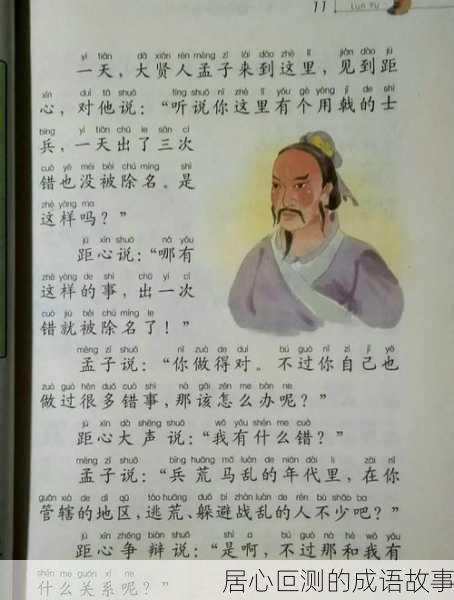 11 Lun Yu
yì tiān dà xián rén mèng zǐ lái dào zhè lǐ jiàn dào jù
一天，大贤人孟子来到这里，见到距
xīn duì tā shuō tīng shuō nǐ zhè lǐ yǒu gè yòng jǐ de shì
心，对他说：“听说你这里有个用戟的士
bīng yì tiān chū le sān cì
兵，一天出了三次
cuò yě méi bèi chú míng shì
错也没被除名。是
zhè yàng ma
这样吗？”
jù xīn shuō nǎ yǒu
距心说：“哪有
zhè yàng de shì chū yí cì
这样的事，出一次
cuò jiù bèi chú míng le
错就被除名了！”
mèng zǐ shuō nǐ zuò de duì bú guò nǐ zì jǐ yě
孟子说：“你做得对。不过你自己也
zuò guò hěn duō cuò shì nà gāi zěn me bàn ne
做过很多错事，那该怎么办呢？”
jù xīn dà shēng shuō wǒ yǒu shén me cuò
距心大声说：“我有什么错？”
mèng zǐ shuō bīng huāng mǎ luàn de nián dài lǐ zài nǐ
孟子说：“兵荒马乱的年代里，在你
guǎn xiá de dì qū táo huāng duǒ bì zhàn luàn de rén bù shǎo ba
管辖的地区，逃荒、躲避战乱的人不少吧？”
jù xīn zhēng biàn shuō shì a bú guò nà hé wǒ yǒu
距心争辩说：“是啊，不过那和我有
shén me guān xì ne
什么关系呢？”
居心叵测的成语故事